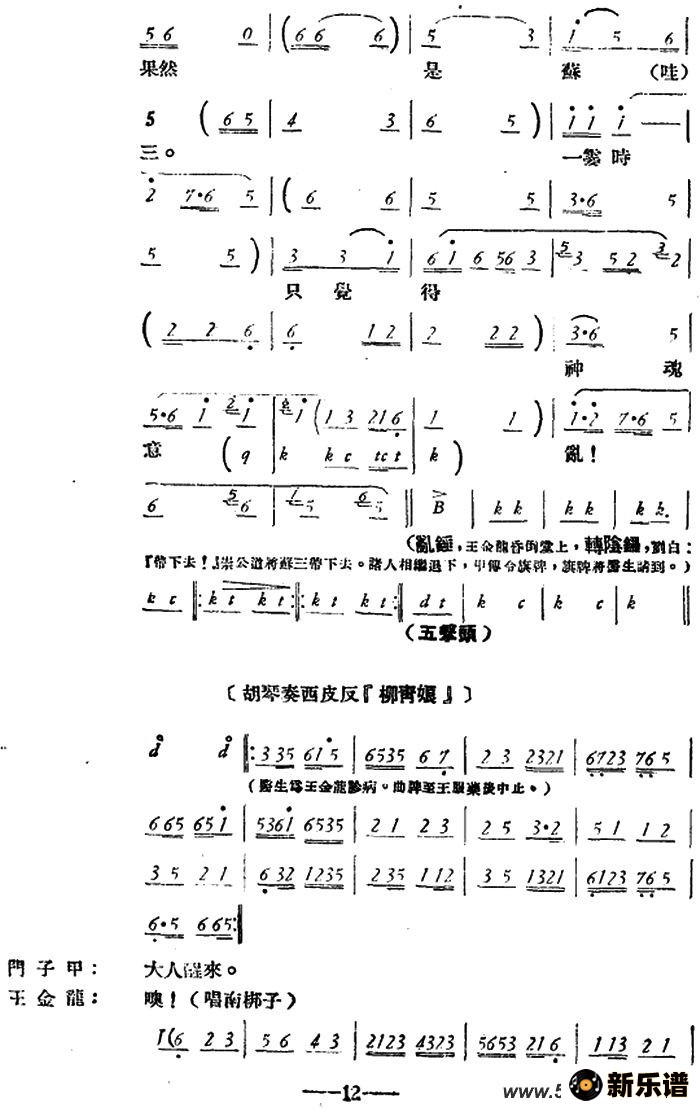 5 6 0 | ( 6 6 6 ) | 5 3 | i 5 6 |
果然 是 蘇 (哇)
5 ( 6 5 | 4 3 | 6 5 ) | i i i — |
三。 一霎時
2 7·6 5 | ( 6 6 | 5 5 | 3·6 5
5 5 ) | 3 3 i | 6 i 6 56 3 | 5 3 5 2 3 2 |
只覺得
( 2 2 6 | 6 1 2 | 2 2 2 ) | 3·6 5 |
神魂
5·6 i 2 i | i ( 1 3 216 | 1 1 ) | i·2 7·6 5 |
意 ( q | k k c tc t | k ) 亂!
6 5 6 | 1 5 6 5 || B | k k | k k | k k. |
(亂錘,王金龍昏倒堂上,轉陰鑼,劉白:
『帶下去!』崇公道將蘇三帶下去。諸人相繼退下,甲傳令旗牌,旗牌將醫生請到。)
k c ‖: k t k t :‖: k t k t :‖ d t | k c | k c | k ‖
(五擊頭)
〔胡琴奏西皮反『柳青娘』〕
d d ‖: 3 35 61 5 | 6535 6 7 | 2 3 2321 | 6723 76 5 |
(醫生爲王金龍診病。曲牌至王服藥後中止。)
6 65 65 1 | 5361 6535 | 2 1 2 3 | 2 5 3·2 | 5 1 1 2 |
3 5 2 1 | 6 32 1235 | 2 35 1 12 | 3 5 1321 | 6123 76 5 |
6·5 6 65 :‖
門子甲: 大人醒來。
王金龍: 噢!(唱南梆子)
(6 2 3 | 5 6 4 3 | 2123 4323 | 5653 21 6 | 1 13 2 1 |
—12—
www.5
新乐谱